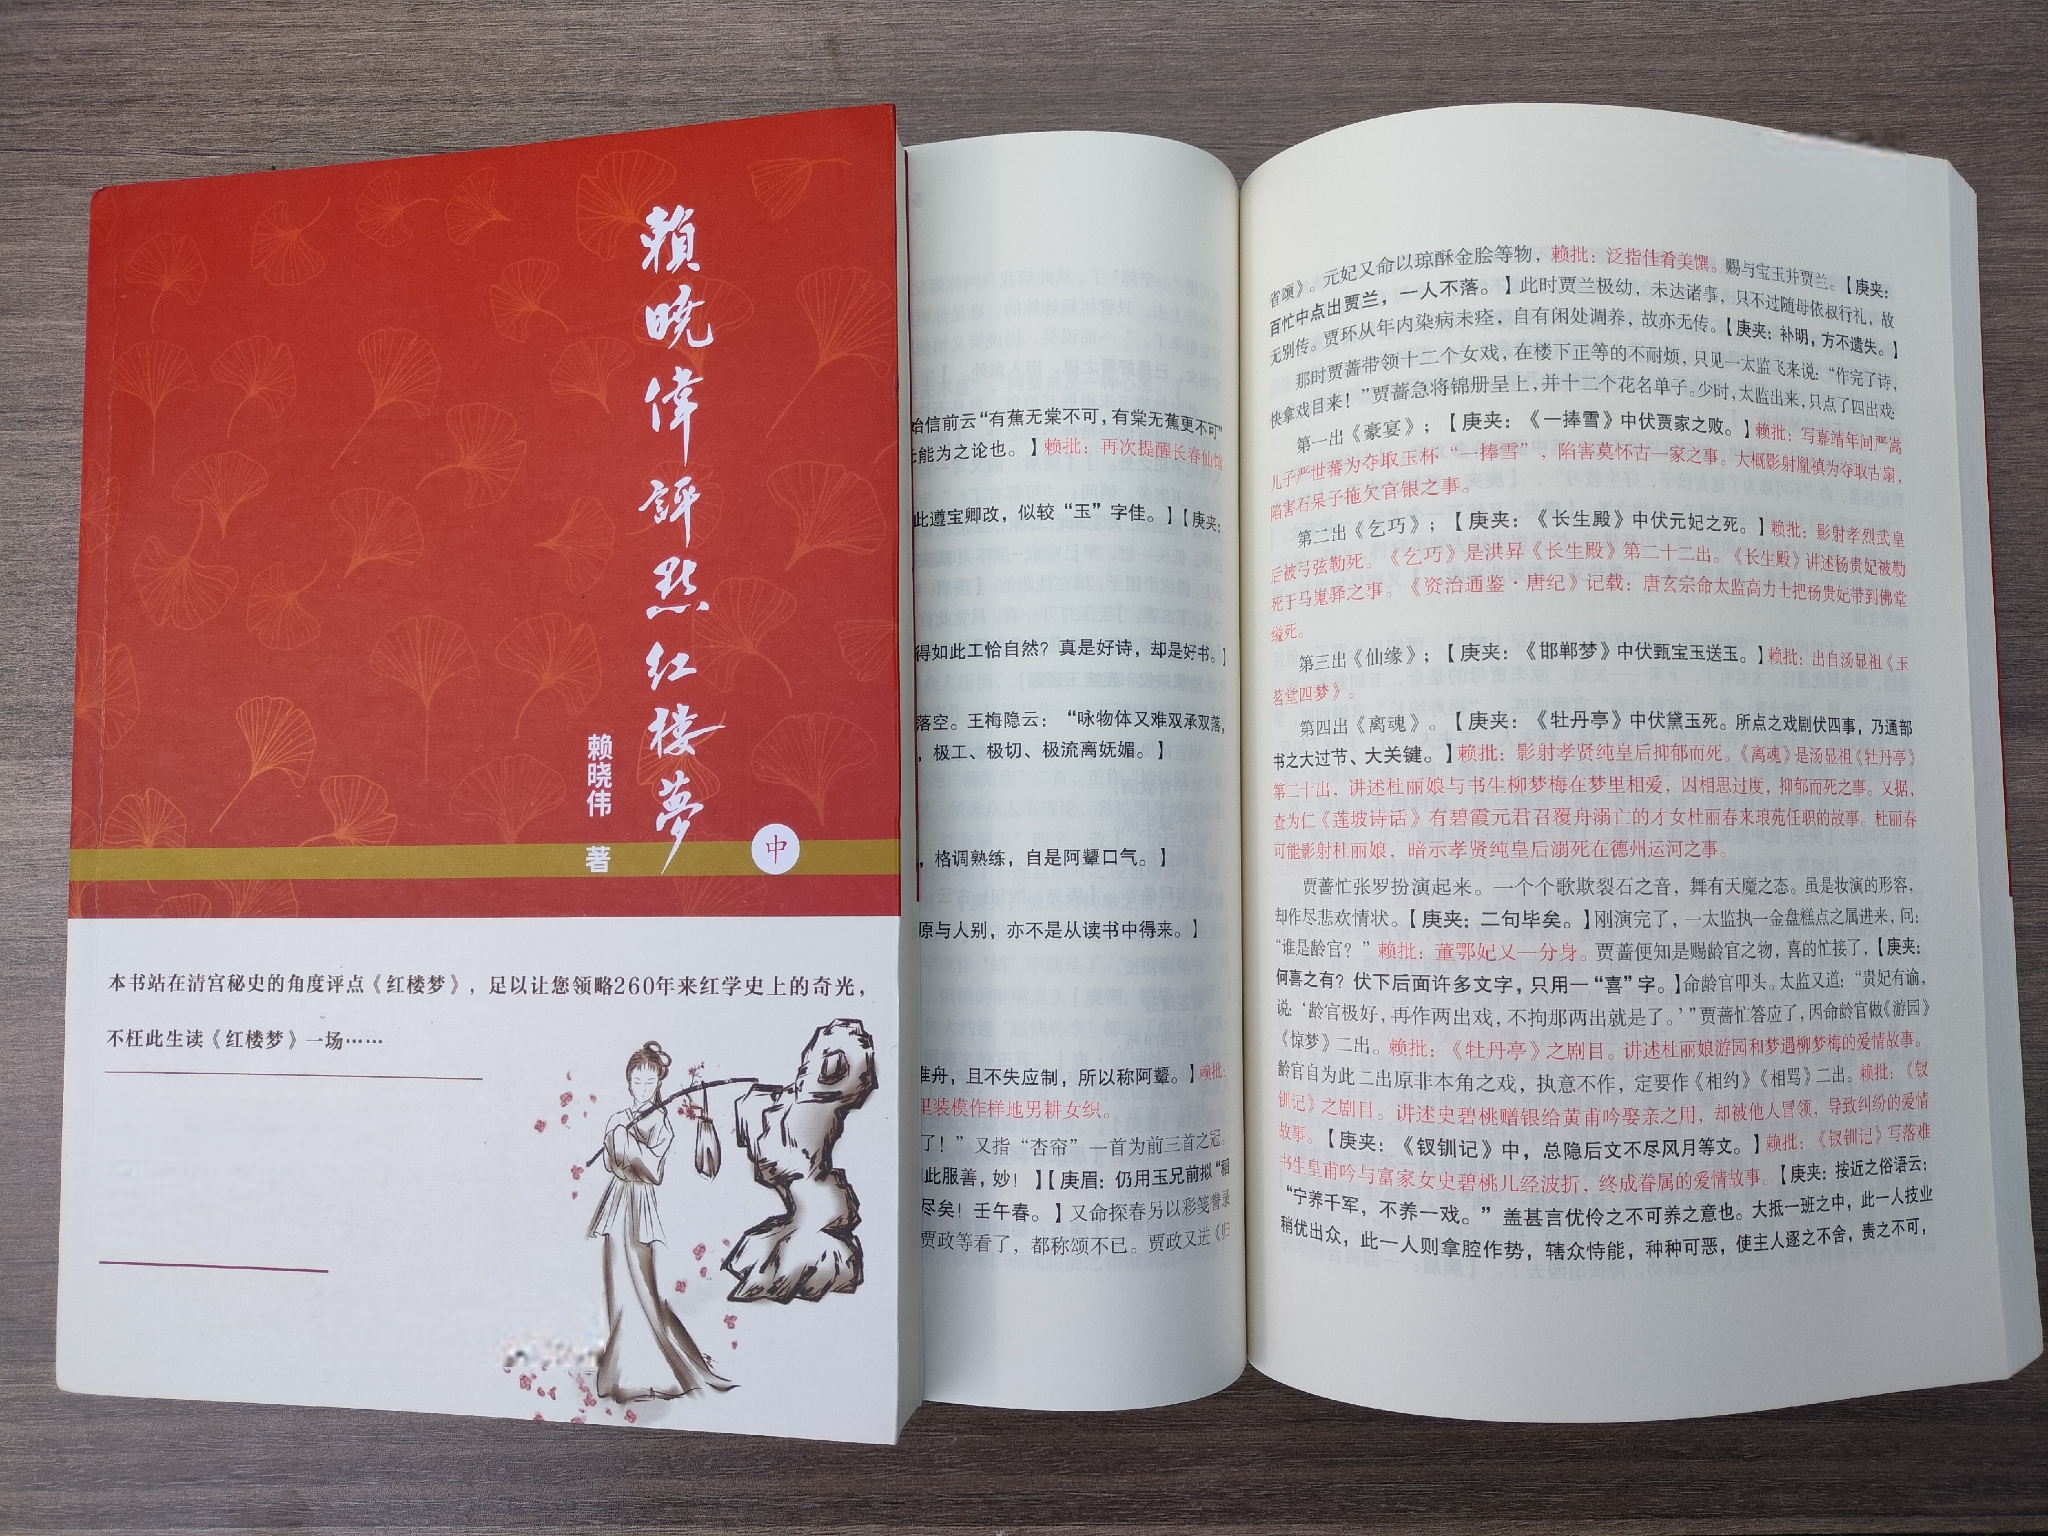 賴曉偉評點红楼夢
赖晓伟 著
中
本书站在清宫秘史的角度评点《红楼梦》，足以让您领略260年来红学史上的奇光，
不枉此生读《红楼梦》一场……
始信前云“有蕉无棠不可，有棠无蕉更不可”
能为之论也。】赖批：再次提醒长春仙馆
此遵宝卿改，似较“玉”字佳。】【庚夹：
得如此工恰自然？真是好诗，却是好书。】
落空。王梅隐云：“咏物体又难双承双落，
，极工、极切、极流离妩媚。】
，格调熟练，自是阿颦口气。】
原与人别，亦不是从读书中得来。】
难舟，且不失应制，所以称阿颦。】赖批：
里装模作样地男耕女织。
了！”又指“杏帘”一首为前三首之冠。
此服善，妙！】【庚眉：仍用玉兄前拟“稻
尽矣！壬午春。】又命探春另以彩笺誊录
贾政等看了，都称颂不已。贾政又进《归
省颂》。元妃又命以琼酥金脍等物，赖批：泛指佳肴美馔。赐与宝玉并贾兰。【庚夹：
百忙中点出贾兰，一人不落。】此时贾兰极幼，未达诸事，只不过随母依叔行礼，故
无别传。贾环从年内染病未痊，自有闲处调养，故亦无传。【庚夹：补明，方不遗失。】
那时贾蔷带领十二个女戏，在楼下正等的不耐烦，只见一太监飞来说：“作完了诗，
快拿戏目来！”贾蔷急将锦册呈上，并十二个花名单子。少时，太监出来，只点了四出戏：
第一出《豪宴》；【庚夹：《一捧雪》中伏贾家之败。】赖批：写嘉靖年间严嵩
儿子严世蕃为夺取玉杯“一捧雪”，陷害莫怀古一家之事。大概影射胤禛为夺取古扇，
陷害石呆子拖欠官银之事。
第二出《乞巧》；【庚夹：《长生殿》中伏元妃之死。】赖批：影射孝烈武皇
后被弓弦勒死。《乞巧》是洪昇《长生殿》第二十二出。《长生殿》讲述杨贵妃被勒
死于马嵬驿之事。《资治通鉴·唐纪》记载：唐玄宗命太监高力士把杨贵妃带到佛堂
缢死。
第三出《仙缘》；【庚夹：《邯郸梦》中伏甄宝玉送玉。】赖批：出自汤显祖《玉
茗堂四梦》。
第四出《离魂》。【庚夹：《牡丹亭》中伏黛玉死。所点之戏剧伏四事，乃通部
书之大过节、大关键。】赖批：影射孝贤纯皇后抑郁而死。《离魂》是汤显祖《牡丹亭》
第二十出，讲述杜丽娘与书生柳梦梅在梦里相爱，因相思过度，抑郁而死之事。又据，
查为仁《莲坡诗话》有碧霞元君召覆舟溺亡的才女杜丽春来琅苑任职的故事。杜丽春
可能影射杜丽娘，暗示孝贤纯皇后溺死在德州运河之事。
贾蔷忙张罗扮演起来。一个个歌欺裂石之音，舞有天魔之态。虽是妆演的形容，
却作尽悲欢情状。【庚夹：二句毕矣。】刚演完了，一太监执一金盘糕点之属进来，问：
“谁是龄官？”赖批：董鄂妃又一分身。贾蔷便知是赐龄官之物，喜的忙接了，【庚夹：
何喜之有？伏下后面许多文字，只用一“喜”字。】命龄官叩头。太监又道：“贵妃有谕，
说：‘龄官极好，再作两出戏，不拘那两出就是了。’”贾蔷忙答应了，因命龄官做《游园》
《惊梦》二出。赖批：《牡丹亭》之剧目。讲述杜丽娘游园和梦遇柳梦梅的爱情故事。
龄官自为此二出原非本角之戏，执意不作，定要作《相约》《相骂》二出。赖批：《钗
钏记》之剧目。讲述史碧桃赠银给黄甫吟娶亲之用，却被他人冒领，导致纠纷的爱情
故事。【庚夹：《钗钏记》中，总隐后文不尽风月等文。】赖批：《钗钏记》写落难
书生皇甫吟与富家女史碧桃儿经波折，终成眷属的爱情故事。【庚夹：按近之俗语云：
“宁养千军，不养一戏。”盖甚言优伶之不可养之意也。大抵一班之中，此一人技业
稍优出众，此一人则拿腔作势，辖众恃能，种种可恶，使主人逐之不舍，责之不可，